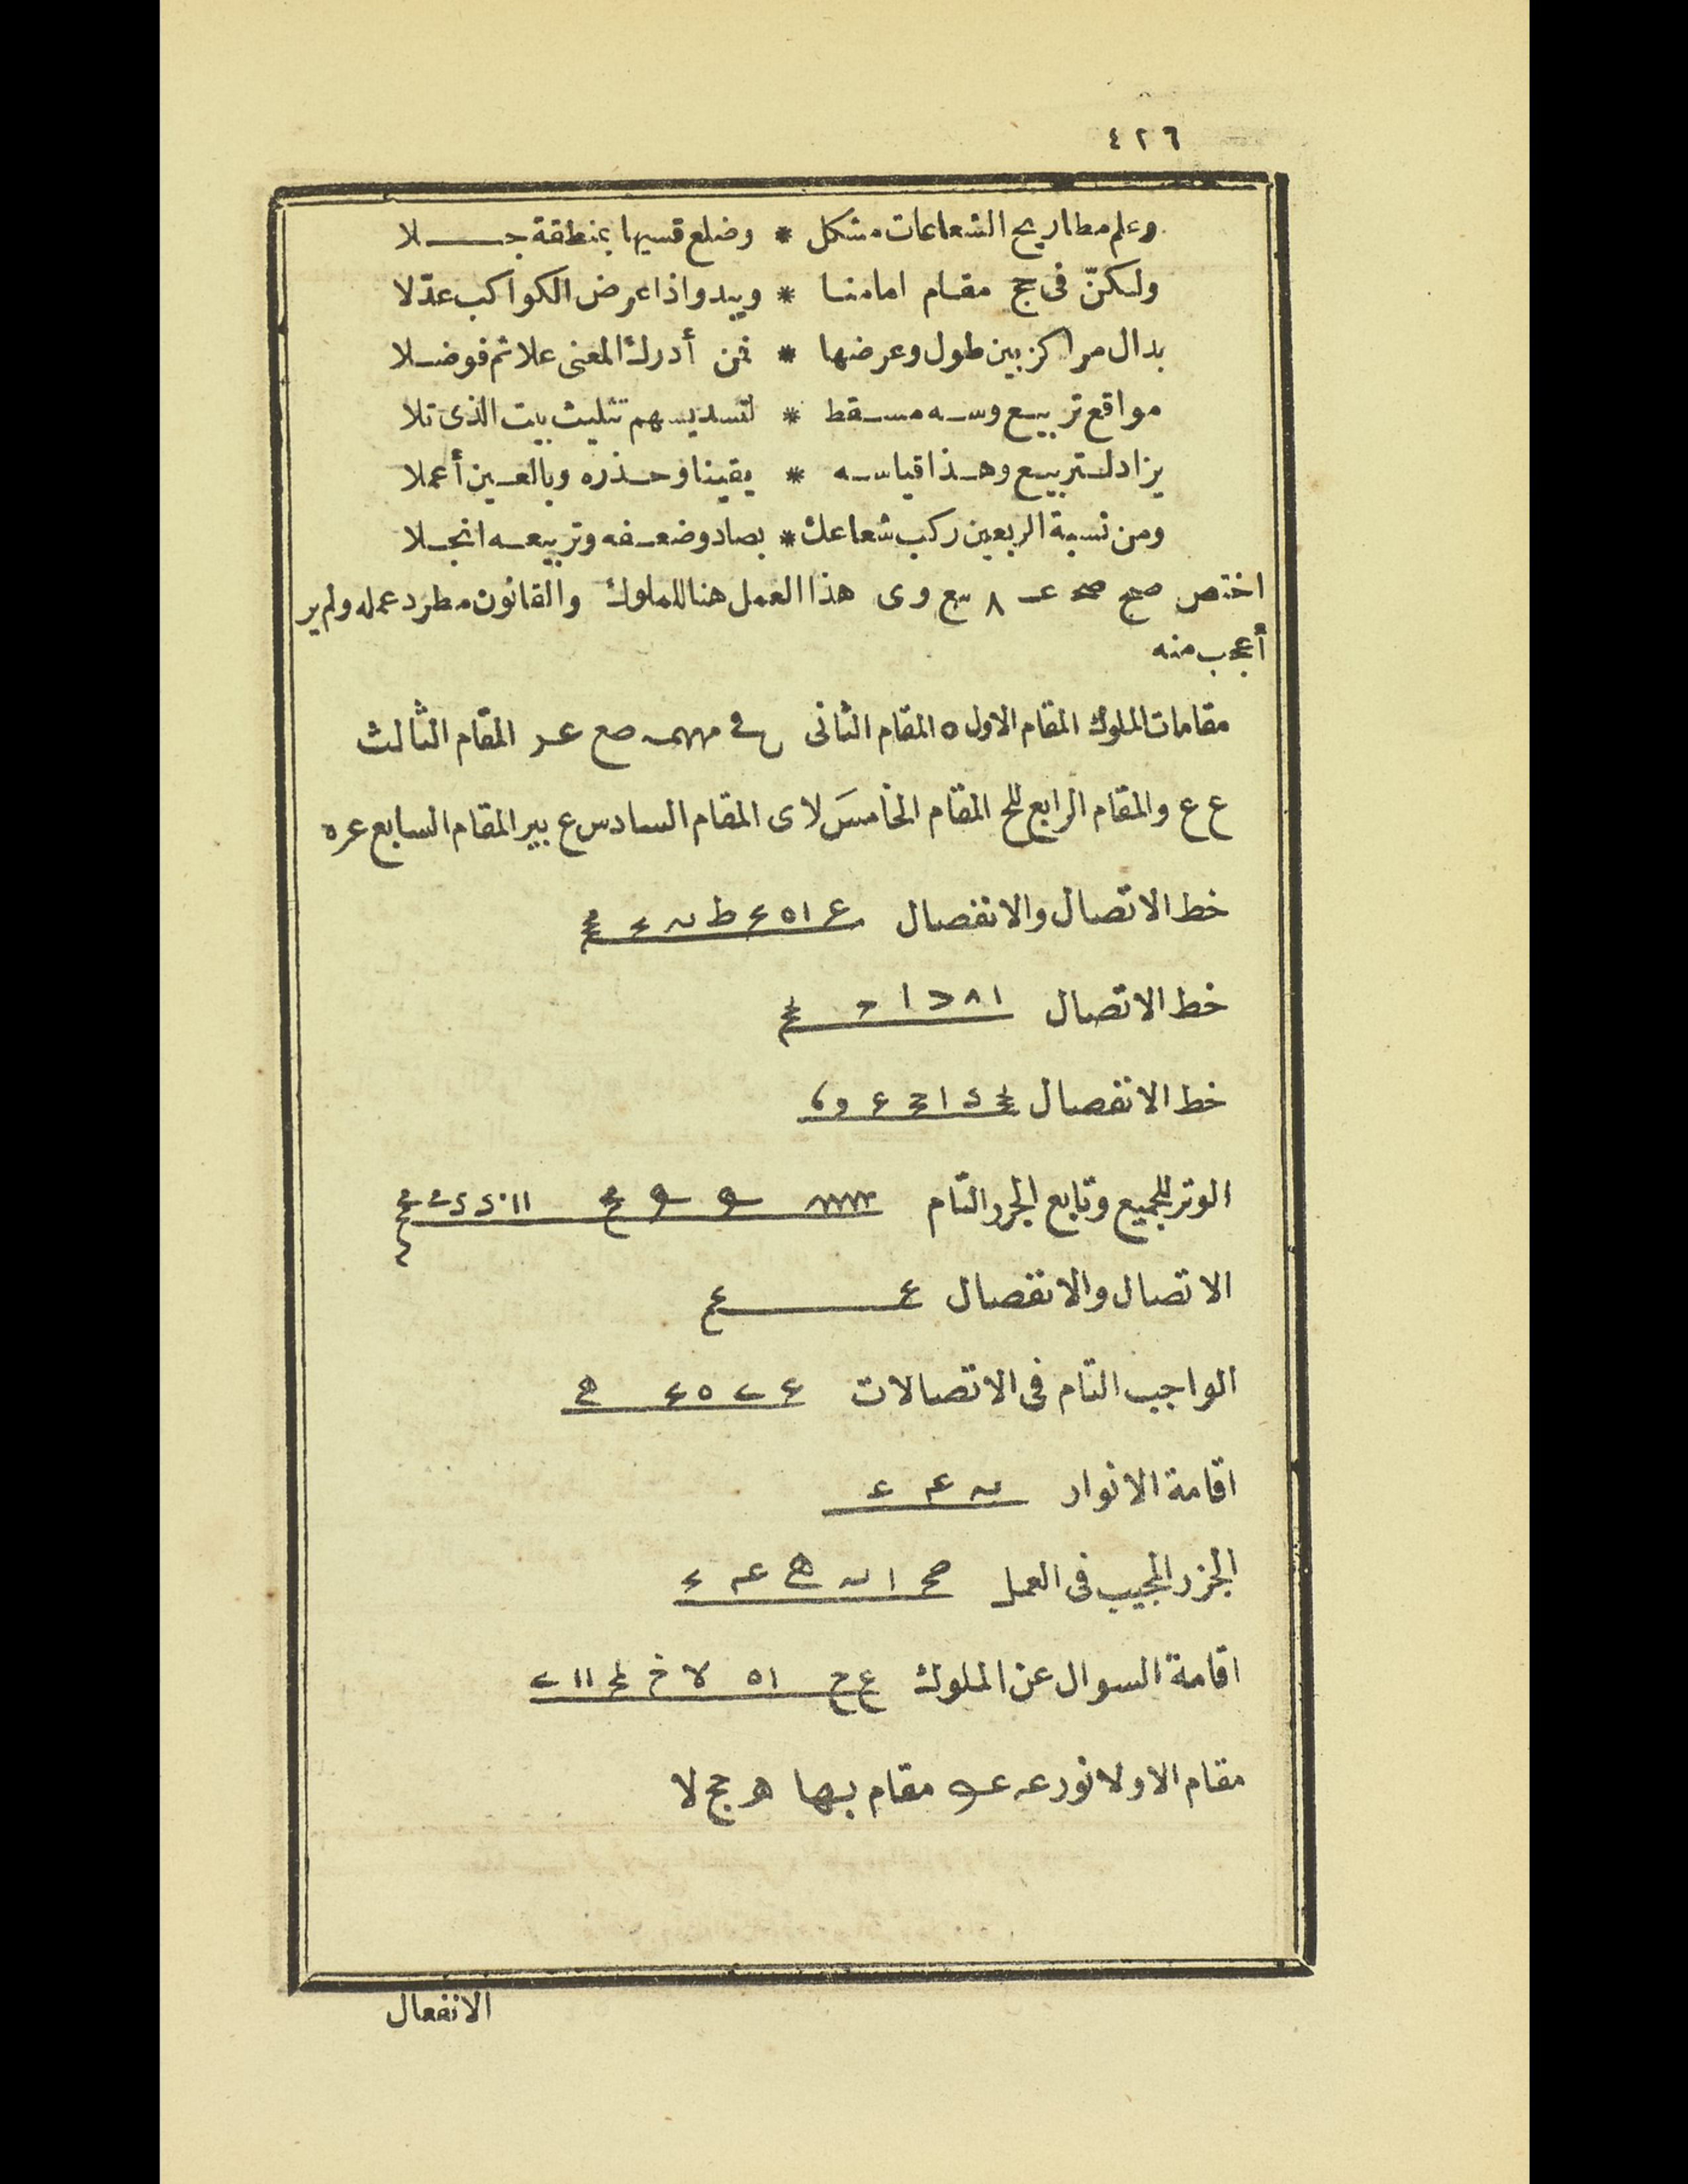 ٤٢٦
وعلم مطاريح الشعاعات مشكل * وضلع قسيها بمنطقة جـــلا
ولكنّ في حج مقام امامنا * ويبدو اذا عرض الكواكب عدّلا
بدال مراكز بين طول وعرضها * فمن أدرك المعنى علا ثم فوضلا
مواقع تربيع وسه مسقط * لتسديسهم تثليث بيت الذى تلا
يزاد لتربيع وهذا قياسه * يقينا وحذره وبالعين أعملا
ومن نسبة الربعين ركب شعاعك * بصاد وضعفه وتربيعه انجلا
اختص صح صح عـ ٨ سع وى هذا العمل هنا للملوك والقانون مطرد عمله ولم ير
أعجب منه
مقامات الملوك المقام الاول ٥ المقام الثانى صع عر المقام الثالث
ع ع والمقام الرابع للح المقام الخامس لاى المقام السادس ع بير المقام السابع عره
خط الاتصال والانفصال
خط الاتصال
خط الانفصال
الوتر للجميع وتابع الجرر التام
الاتصال والانفصال
الواجب التام فى الاتصالات
اقامة الانوار
الجزر المجيب فى العمل
اقامة السوال عن الملوك
مقام الاولا نور عه مقام بها هر حج لا
الانفعال